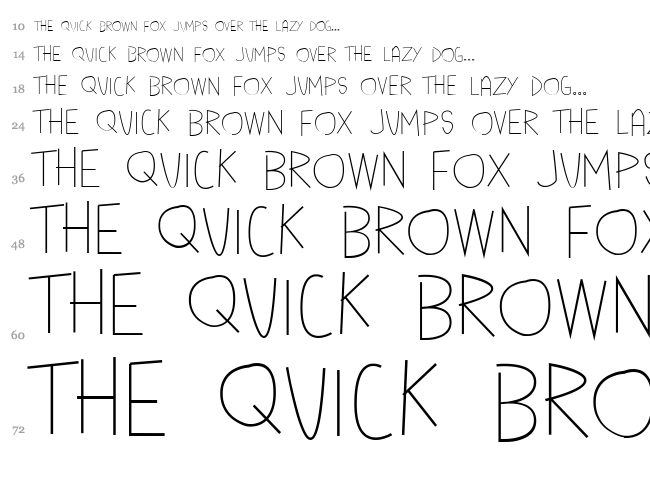 10 THE QUICK BROWN FOX JUMPS OVER THE LAZY DOG...
14 THE QUICK BROWN FOX JUMPS OVER THE LAZY DOG...
18 THE QUICK BROWN FOX JUMPS OVER THE LAZY DOG...
24 THE QUICK BROWN FOX JUMPS OVER THE LA
36 THE QUICK BROWN FOX JUMPS
48 THE QUICK BROWN FOX
60 THE QUICK BROWN
72 THE QUICK BRO